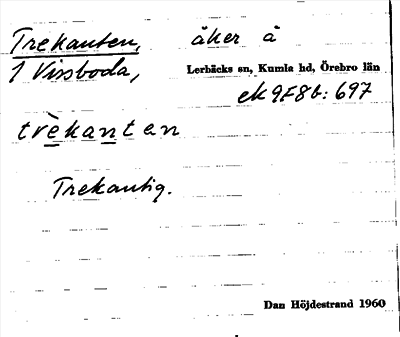 Trekanten, åker å
1 Vissboda, Lerbäcks sn, Kumla hd, Örebro län
ek 9F8b: 697
trèkanten
Trekantig.
Dan Höjdestrand 1960